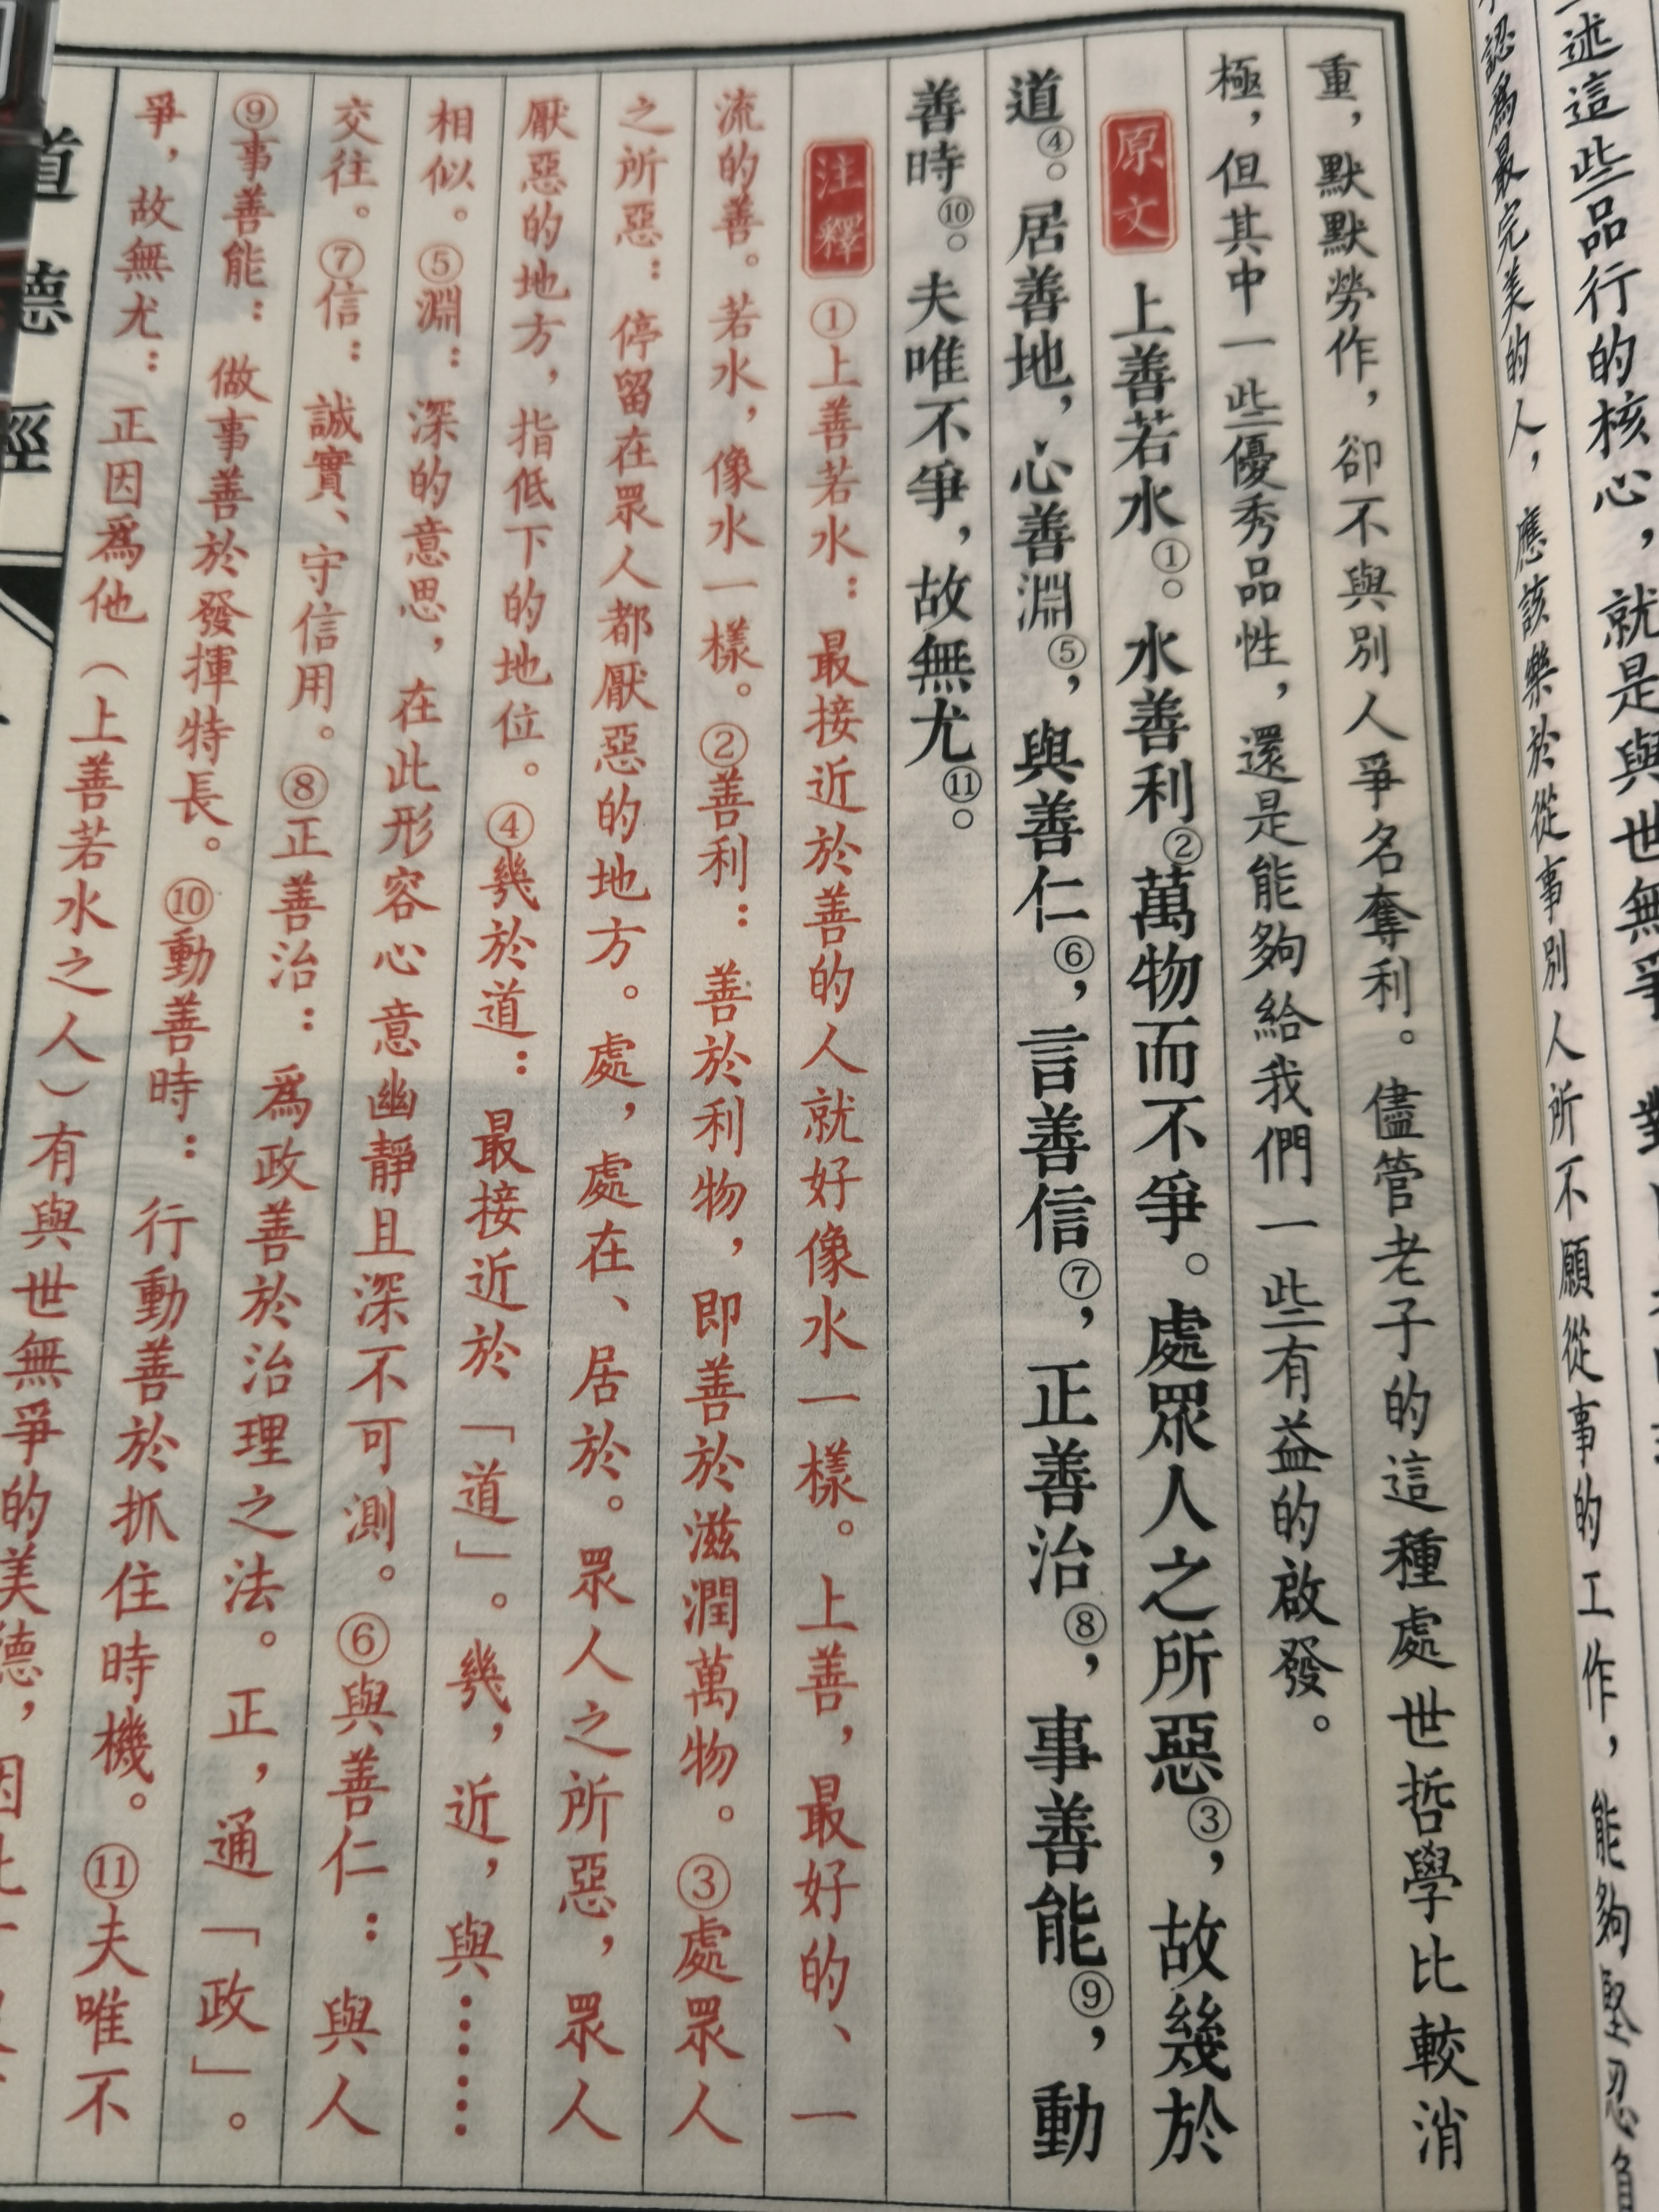 述這些品行的核心，就是與世無爭
認為最完美的人，應該樂於從事別人所不願從事的工作，能夠堅忍負
重，默默勞作，卻不與別人爭名奪利。儘管老子的這種處世哲學比較消
極，但其中一些優秀品性，還是能夠給我們一些有益的啟發。
原文 上善若水①。水善利②萬物而不爭。處眾人之所惡③，故幾於
道④。居善地，心善淵⑤，與善仁⑥，言善信⑦，正善治⑧，事善能⑨，動
善時⑩。夫唯不爭，故無尤⑪。
注釋 ①上善若水：最接近於善的人就好像水一樣。上善，最好的、一
流的善。若水，像水一樣。②善利：善於利物，即善於滋潤萬物。③處眾人
之所惡：停留在眾人都厭惡的地方。處，處在、居於。眾人之所惡，眾人
厭惡的地方，指低下的地位。④幾於道：最接近於「道」。幾，近，與……
相似。⑤淵：深的意思，在此形容心意幽靜且深不可測。⑥與善仁：與人
交往。⑦信：誠實、守信用。⑧正善治：為政善於治理之法。正，通「政」。
⑨事善能：做事善於發揮特長。⑩動善時：行動善於抓住時機。⑪夫唯不
爭，故無尤：正因為他（上善若水之人）有與世無爭的美德，因此
道德經